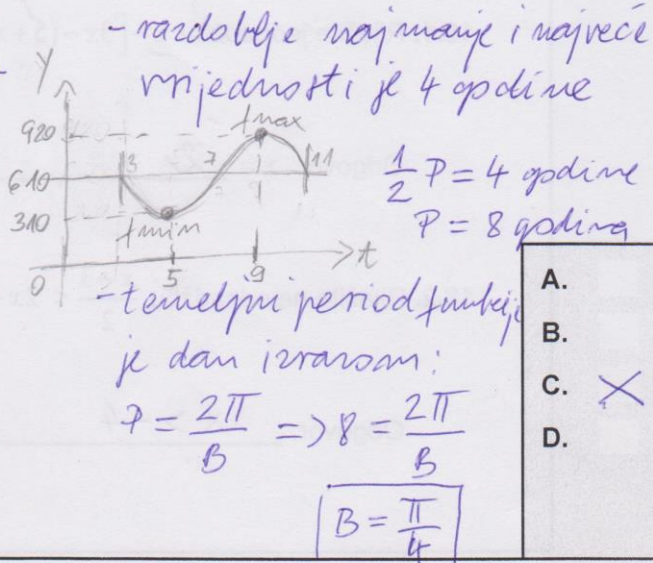 - razdoblje najmanje i najveće
vrijednosti je 4 godine
Y
920
610
310
0
3
7
11
fmax
fmin
5
9
t
1/2 P = 4 godine
P = 8 godina
- temeljni period funkcije
je dan izrazom:
P = 2π/B => 8 = 2π/B
B = π/4
A.
B.
C. X
D.